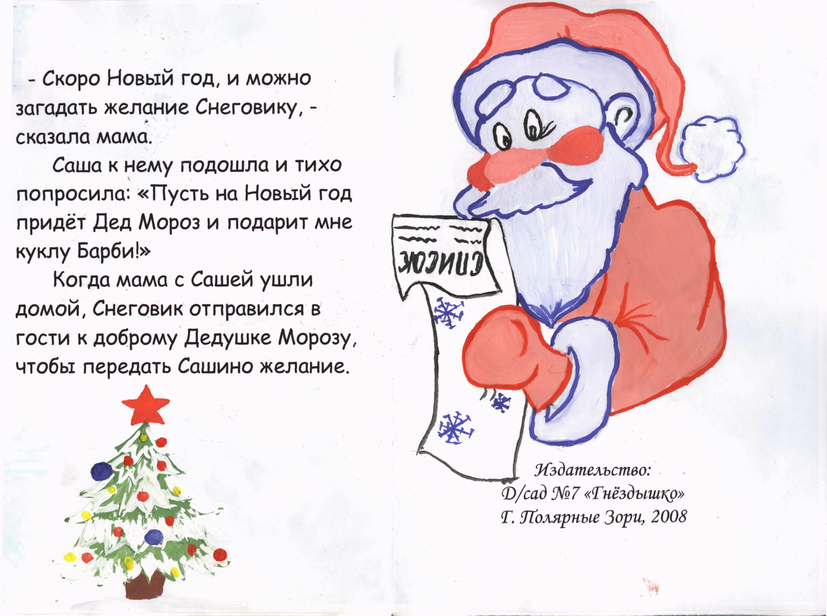 - Скоро Новый год, и можно
загадать желание Снеговику, -
сказала мама.
Саша к нему подошла и тихо
попросила: «Пусть на Новый год
придёт Дед Мороз и подарит мне
куклу Барби!»
Когда мама с Сашей ушли
домой, Снеговик отправился в
гости к доброму Дедушке Морозу,
чтобы передать Сашино желание.
СПИСОК
Издательство:
Д/сад №7 «Гнёздышко»
Г. Полярные Зори, 2008